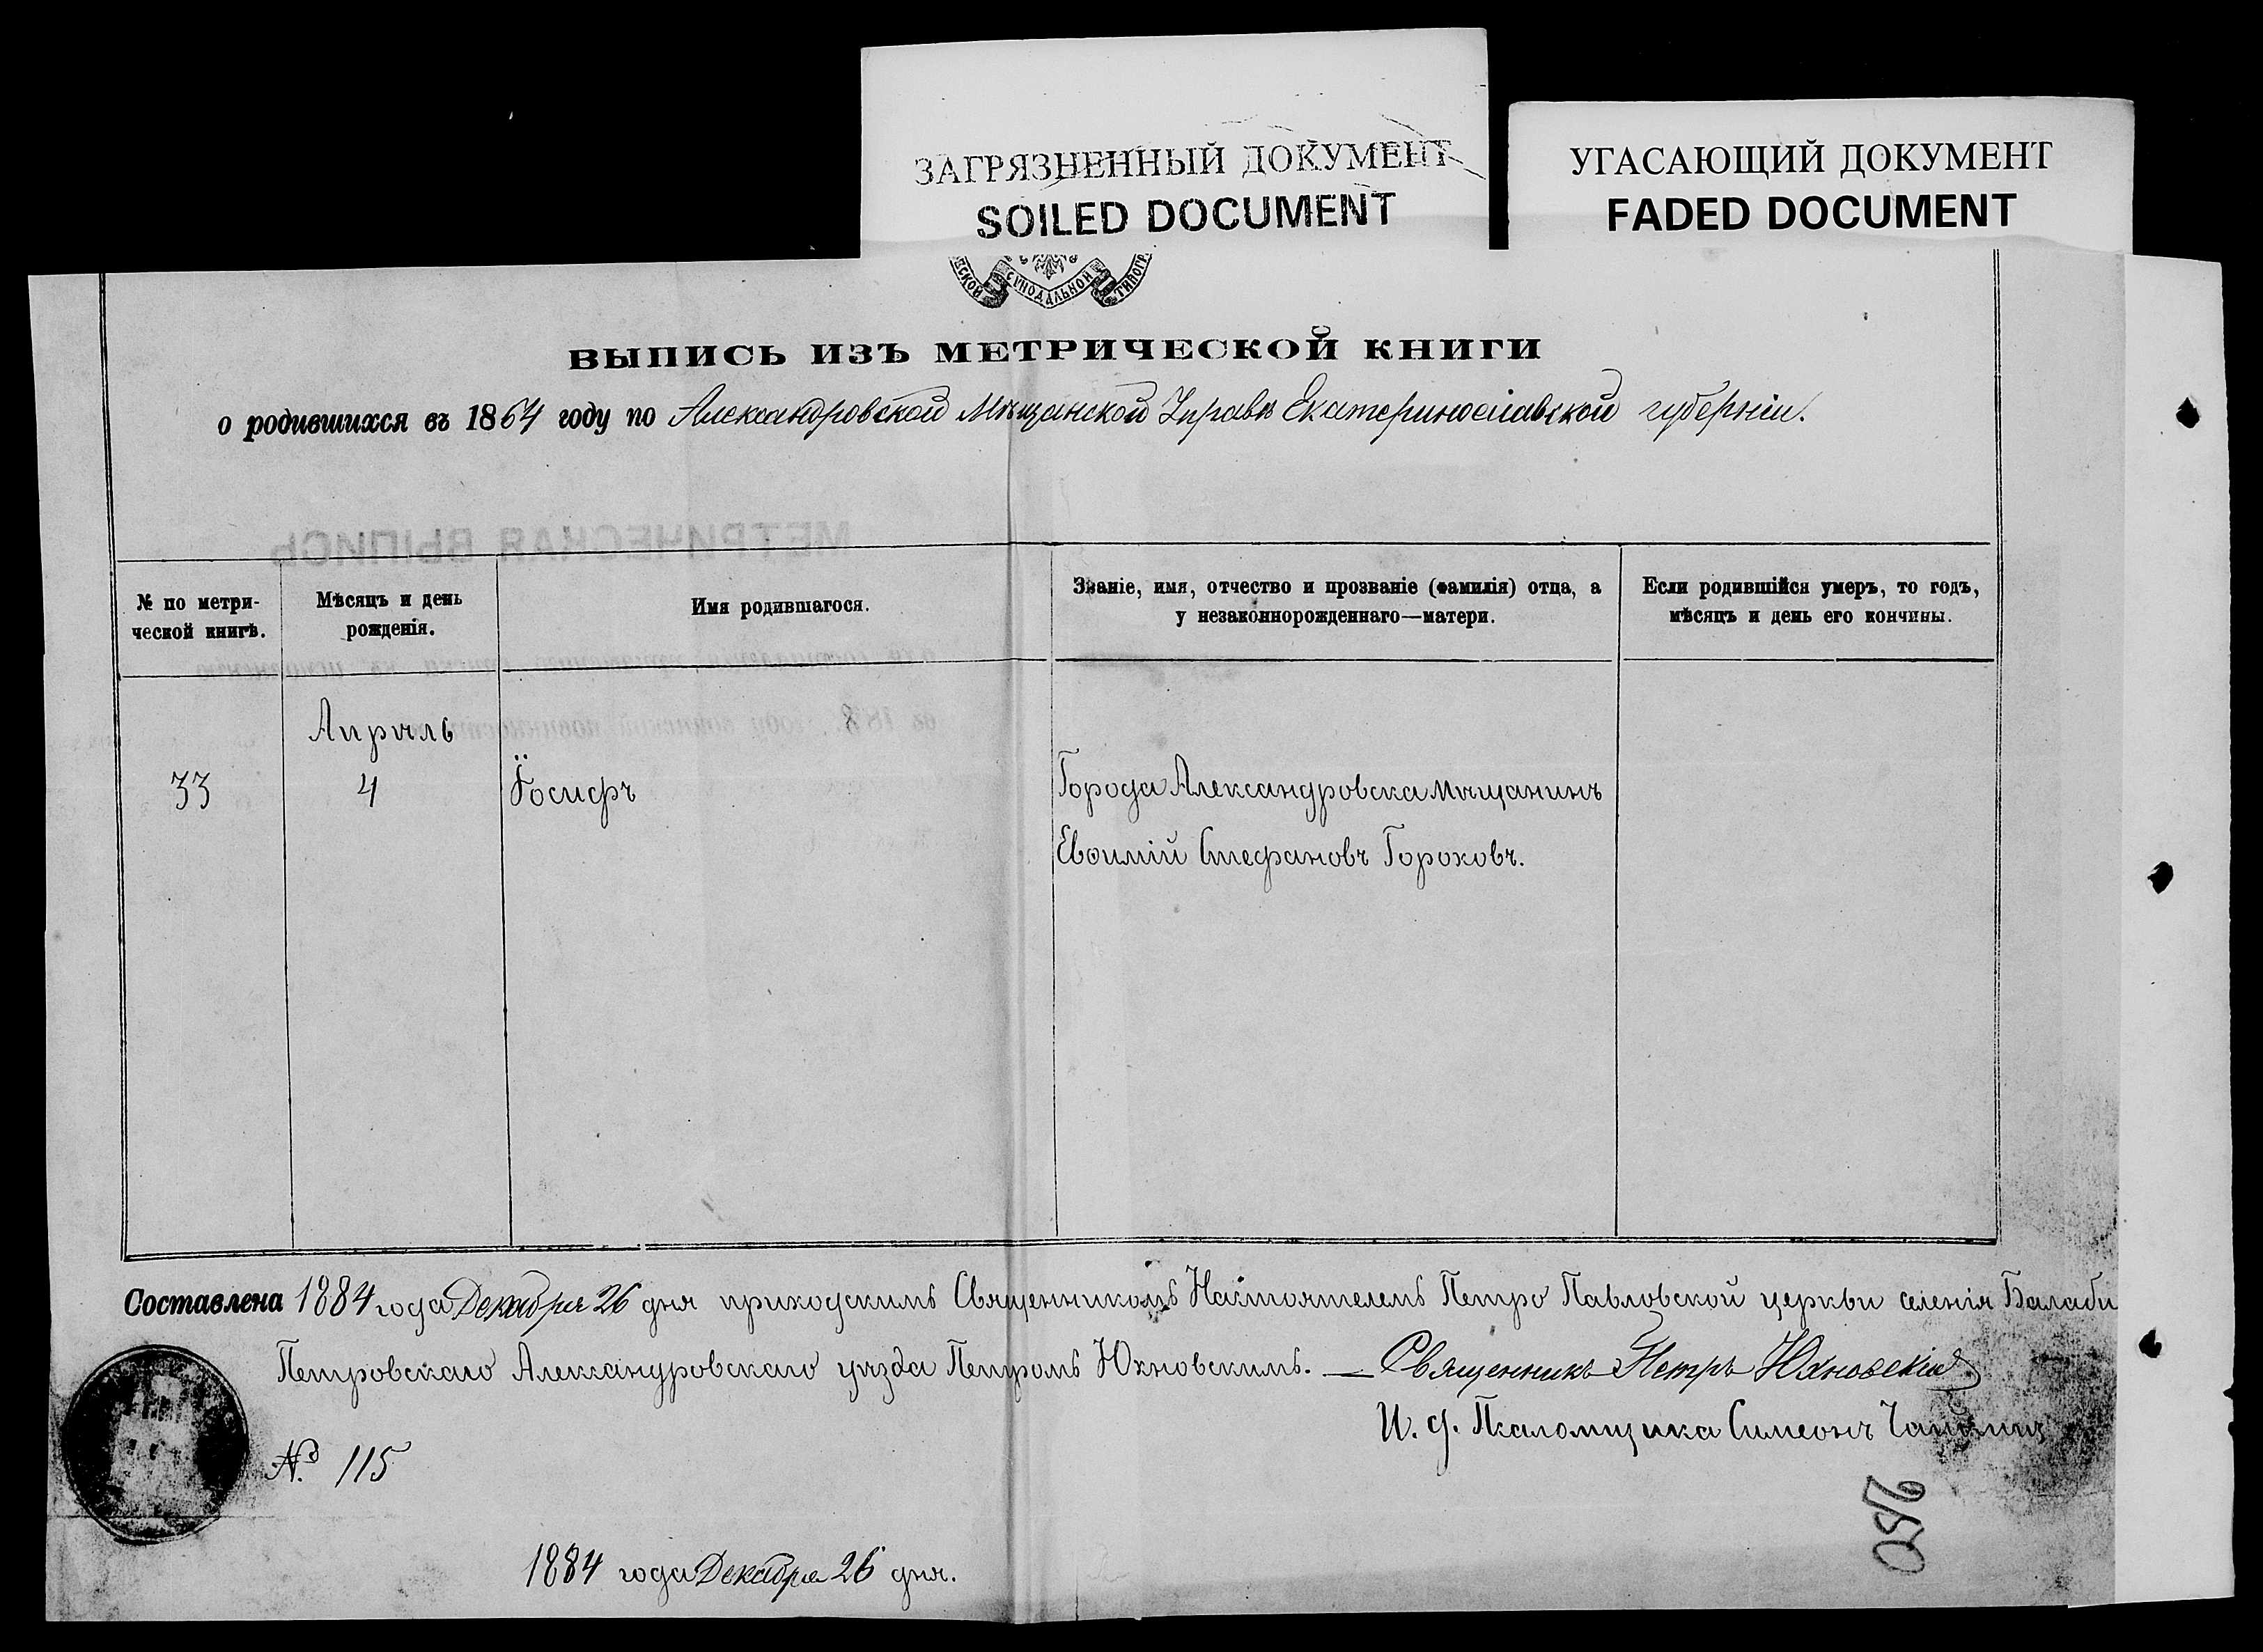 ЗАГРЯЗНЕННЫЙ ДОКУМЕНТ
SOILED DOCUMENT
УГАСАЮЩИЙ ДОКУМЕНТ
FADED DOCUMENT
СѴНОДАЛЬНОЙ
ВЫПИСЬ ИЗЪ МЕТРИЧЕСКОЙ КНИГИ
о родившихся въ 1864 году по Александровской Мѣщанской Управѣ Екатеринославской губерніи.
МЕТРИЧЕСКАЯ ВЫПИСЬ
№ по метри-
ческой книгѣ.
Мѣсяцъ и день
рожденія.
Имя родившагося.
Званіе, имя, отчество и прозваніе (фамилія) отца, а
у незаконнорожденнаго—матери.
Если родившійся умеръ, то годъ,
мѣсяцъ и день его кончины.
Апрѣль
33
4
Іосифъ
Города Александровска мѣщанинъ
Евѳимій Стефановъ Гороховъ.
Составлена 1884 года Декабря 26 дня приходскимъ Священникомъ Настоятелемъ Петро Павловской церкви селенія Балаби
Петровскаго Александровскаго уѣзда Петромъ Юхновскимъ. — Священникъ Петръ Юхновскій
И. д. Псаломщика Симеонъ
№ 115
1884 года Декабря 26 дня.